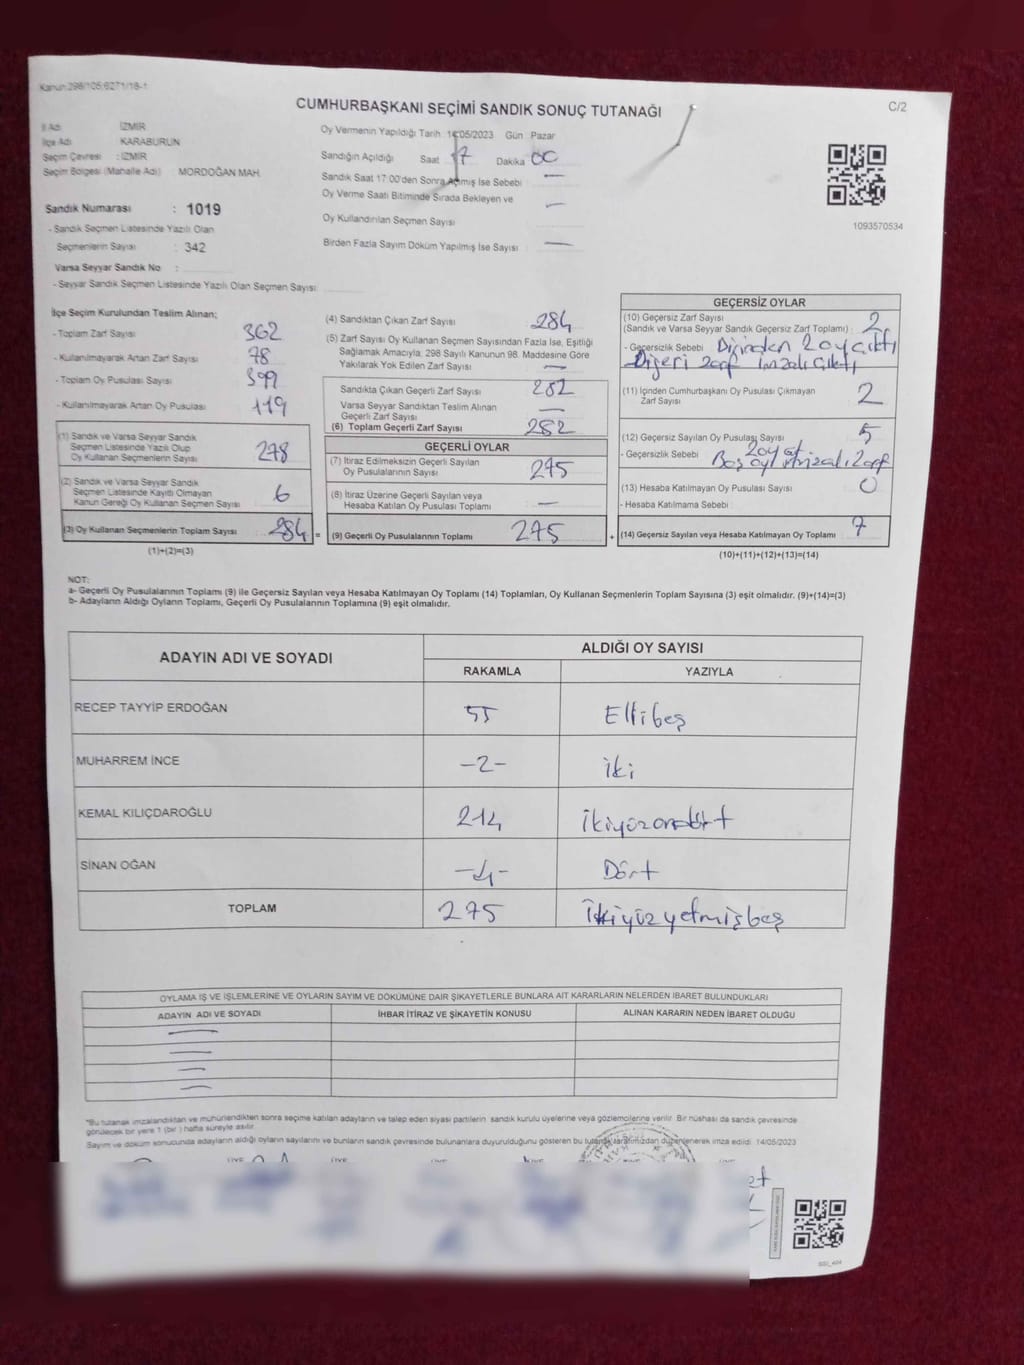 Kanun:298/105;6271/18-1
C/2
CUMHURBAŞKANI SEÇİMİ SANDIK SONUÇ TUTANAĞI
İl Adı : İZMİR
İlçe Adı : KARABURUN
Seçim Çevresi : İZMİR
Seçim Bölgesi (Mahalle Adı) : MORDOĞAN MAH.
Sandık Numarası : 1019
- Sandık Seçmen Listesinde Yazılı Olan
Seçmenlerin Sayısı : 342
Varsa Seyyar Sandık No :
- Seyyar Sandık Seçmen Listesinde Yazılı Olan Seçmen Sayısı:
Oy Vermenin Yapıldığı Tarih 14/05/2023 Gün Pazar
Sandığın Açıldığı Saat 17 Dakika 00
Sandık Saat 17:00'den Sonra Açmış İse Sebebi —
Oy Verme Saati Bitiminde Sırada Bekleyen ve
Oy Kullandırılan Seçmen Sayısı —
Birden Fazla Sayım Döküm Yapılmış İse Sayısı —
1093570534
İlçe Seçim Kurulundan Teslim Alınan;
- Toplam Zarf Sayısı 362
- Kullanılmayarak Artan Zarf Sayısı 78
- Toplam Oy Pusulası Sayısı 399
- Kullanılmayarak Artan Oy Pusulası 119
(1) Sandık ve Varsa Seyyar Sandık
Seçmen Listesinde Yazılı Olup
Oy Kullanan Seçmenlerin Sayısı 278
(2) Sandık ve Varsa Seyyar Sandık
Seçmen Listesinde Kayıtlı Olmayan
Kanun Gereği Oy Kullanan Seçmen Sayısı 6
(3) Oy Kullanan Seçmenlerin Toplam Sayısı 284 =
(1)+(2)=(3)
(4) Sandıktan Çıkan Zarf Sayısı 284
(5) Zarf Sayısı Oy Kullanan Seçmen Sayısından Fazla İse, Eşitliği
Sağlamak Amacıyla, 298 Sayılı Kanunun 98. Maddesine Göre
Yakılarak Yok Edilen Zarf Sayısı —
Sandıkta Çıkan Geçerli Zarf Sayısı 282
Varsa Seyyar Sandıktan Teslim Alınan
Geçerli Zarf Sayısı —
(6) Toplam Geçerli Zarf Sayısı 282
GEÇERLİ OYLAR
(7) İtiraz Edilmeksizin Geçerli Sayılan
Oy Pusulalarının Sayısı 275
(8) İtiraz Üzerine Geçerli Sayılan veya
Hesaba Katılan Oy Pusulaları Toplamı —
(9) Geçerli Oy Pusulalarının Toplamı 275 +
GEÇERSİZ OYLAR
(10) Geçersiz Zarf Sayısı
(Sandık ve Varsa Seyyar Sandık Geçersiz Zarf Toplamı) : 2
- Geçersizlik Sebebi Birinden 2 oy çıktı
Diğeri zarf imzalı çıktı
(11) İçinden Cumhurbaşkanı Oy Pusulası Çıkmayan
Zarf Sayısı 2
(12) Geçersiz Sayılan Oy Pusulası Sayısı 5
- Geçersizlik Sebebi
(13) Hesaba Katılmayan Oy Pusulası Sayısı 0
- Hesaba Katılmama Sebebi
(14) Geçersiz Sayılan veya Hesaba Katılmayan Oy Toplamı 7
(10)+(11)+(12)+(13)=(14)
NOT:
a- Geçerli Oy Pusulalarının Toplamı (9) ile Geçersiz Sayılan veya Hesaba Katılmayan Oy Toplamı (14) Toplamları, Oy Kullanan Seçmenlerin Toplam Sayısına (3) eşit olmalıdır. (9)+(14)=(3)
b- Adayların Aldığı Oyların Toplamı, Geçerli Oy Pusulalarının Toplamına (9) eşit olmalıdır.
ADAYIN ADI VE SOYADI ALDIĞI OY SAYISI
RAKAMLA YAZIYLA
RECEP TAYYİP ERDOĞAN 55 Ellibeş
MUHARREM İNCE -2- iki
KEMAL KILIÇDAROĞLU 214 ikiyüzondört
SİNAN OĞAN -4- Dört
TOPLAM 275 ikiyüzyetmişbeş
OYLAMA İŞ VE İŞLEMLERİNE VE OYLARIN SAYIM VE DÖKÜMÜNE DAİR ŞİKAYETLERLE BUNLARA AİT KARARLARIN NELERDEN İBARET BULUNDUKLARI
ADAYIN ADI VE SOYADI İHBAR İTİRAZ VE ŞİKAYETİN KONUSU ALINAN KARARIN NEDEN İBARET OLDUĞU
*Bu tutanak imzalandıktan ve mühürlendikten sonra seçime katılan adayların ve talep eden siyasi partilerin sandık kurulu üyelerine veya gözlemcilerine verilir. Bir nüshası da sandık çevresinde
görülecek bir yere 1 (bir) hafta süreyle asılır.
Sayım ve döküm sonucunda adayların aldığı oyların sayılarını ve bunların sandık çevresinde bulunanlara duyurulduğunu gösteren bu tutanak tarafımızdan düzenlenerek imza edildi. 14/05/2023